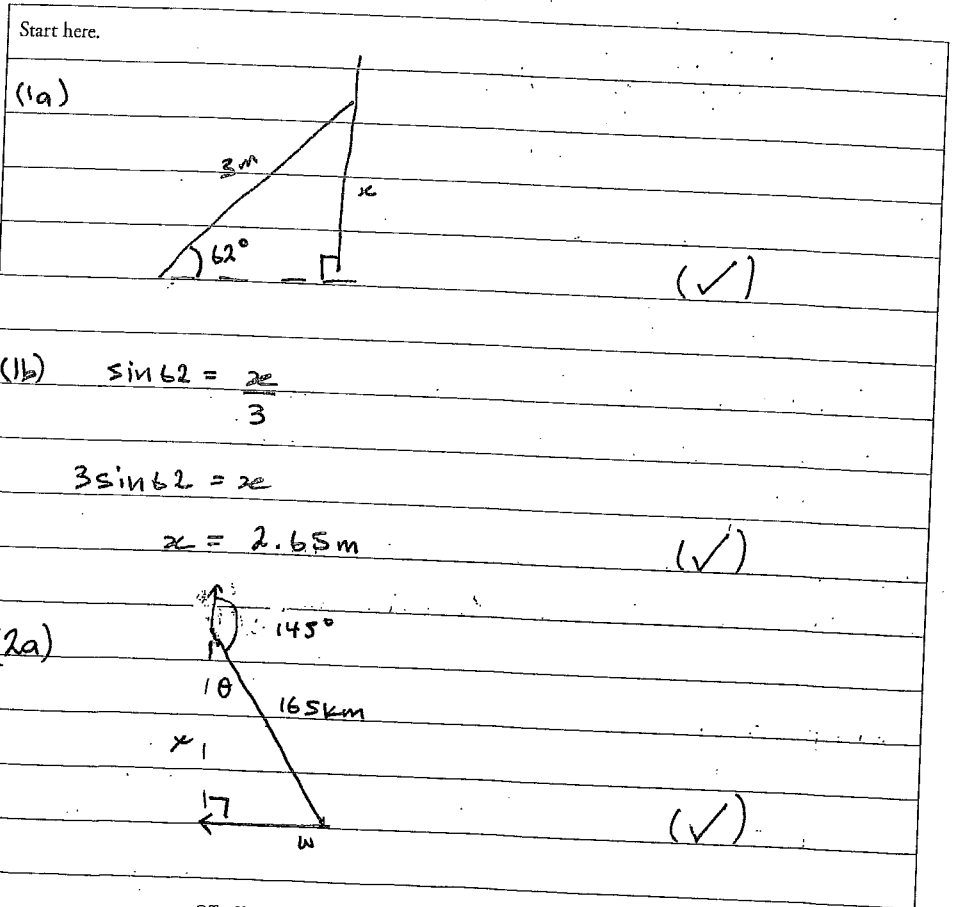 Start here.
(1a)
3m
x
62°
(✓)
(1b) sin 62 = x
3
3 sin 62 = x
x = 2.65m
(✓)
145°
2a)
θ
165km
x
(✓)
w